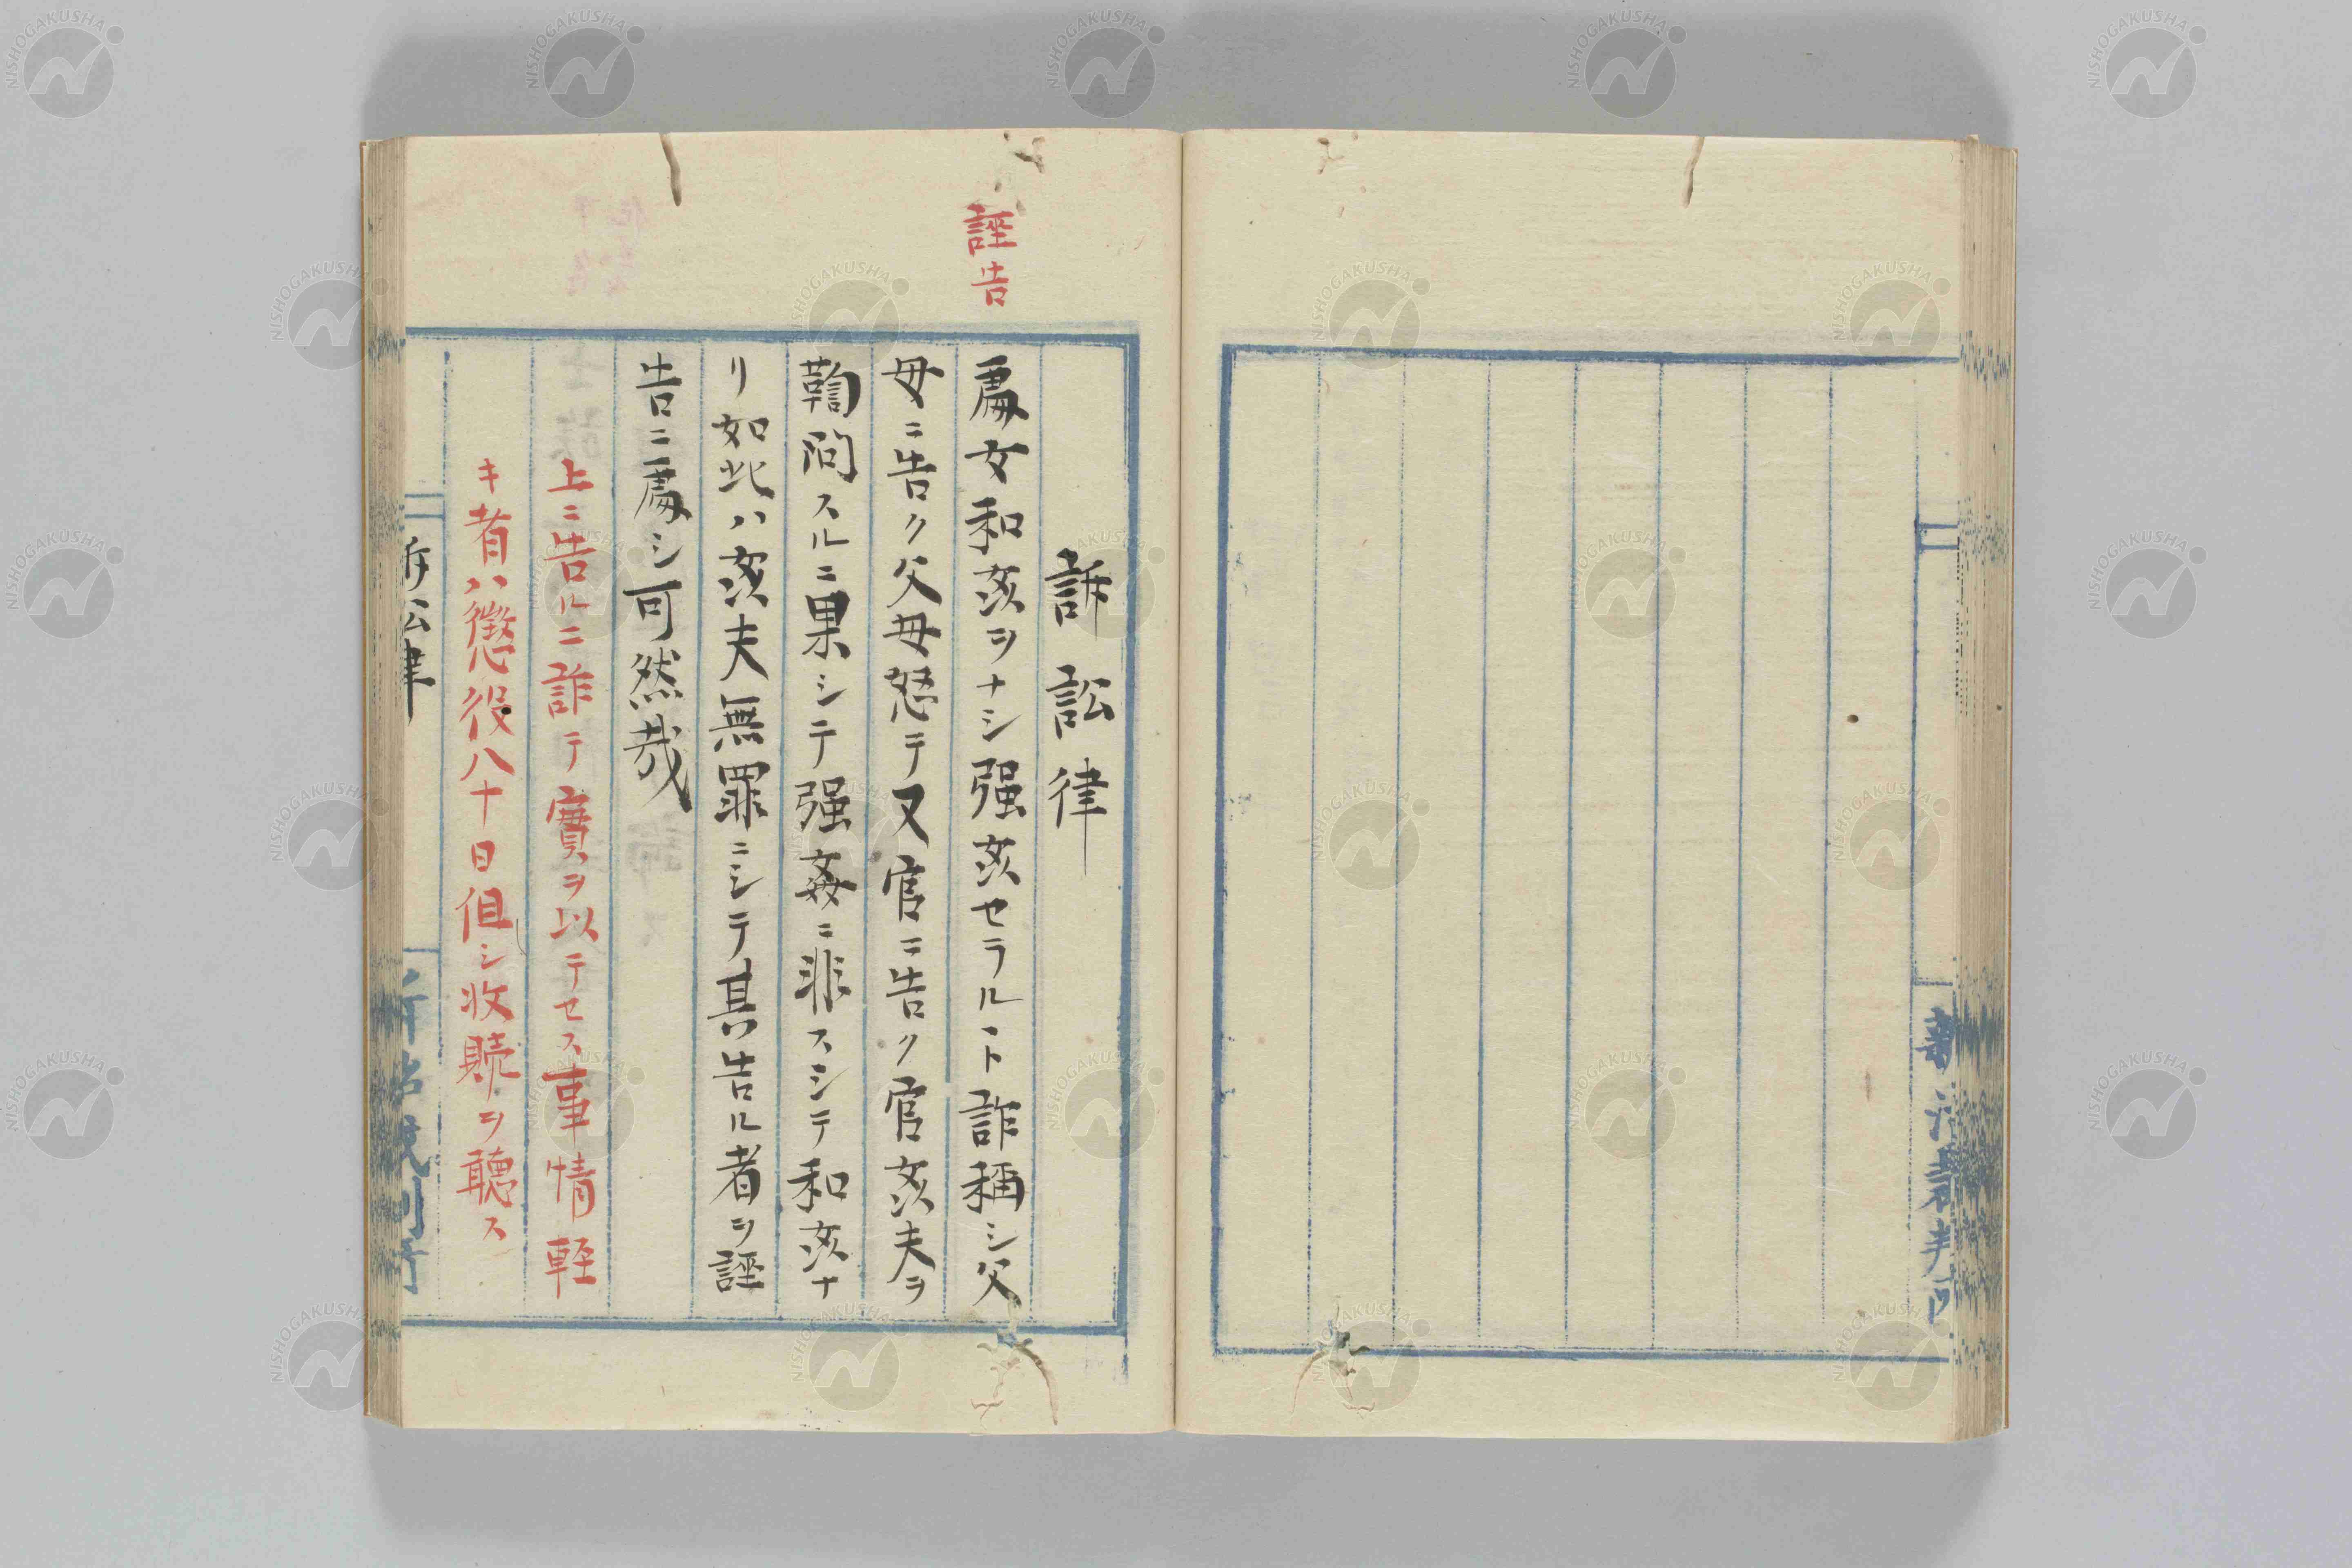 誣告
訴訟律
處女和姦ヲナシ强姦セラルヽト詐稱シ父
母ニ告ク父母怒テ又官ニ告ク官姦夫ヲ
鞫問スルニ果シテ强姦ニ非スシテ和姦ナ
リ如此ハ姦夫無罪ニシテ其告ル者ヲ誣
告ニ處シ可然哉
上ニ告ルニ詐テ實ヲ以テセス事情輕
キ者ハ懲役八十日但シ收贖ヲ聽ス
訴訟律
NISHOGAKUSHA